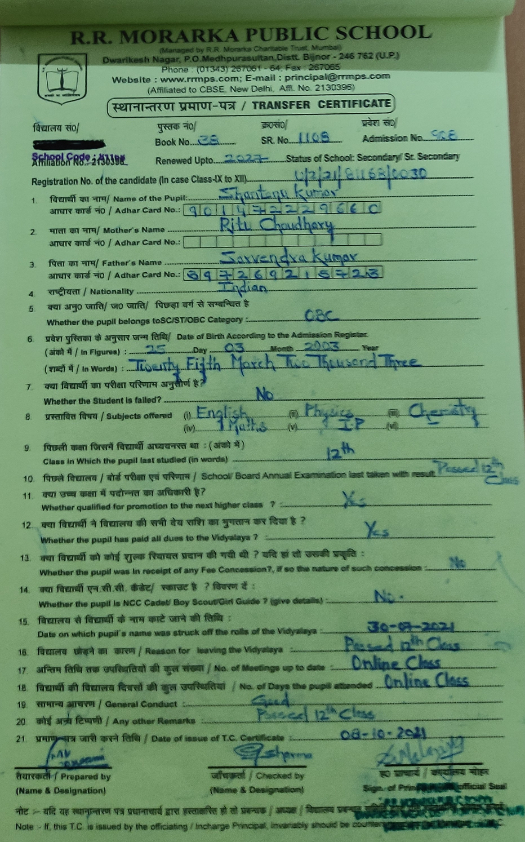 R.R. MORARKA PUBLIC SCHOOL
(Managed by R.R. Morarka Charitable Trust, Mumbai)
Dwarikesh Nagar, P.O.Medhpurasultan,Distt. Bijnor - 246 762 (U.P.)
Phone : (01343) 267061 - 64, Fax : 267065
Website : www.rrmps.com; E-mail : principal@rrmps.com
(Affiliated to CBSE, New Delhi, Affl. No. 2130396)
स्थानान्तरण प्रमाण-पत्र / TRANSFER CERTIFICATE
विद्यालय सं०/ पुस्तक नं०/ क्र०सं०/ प्रवेश सं०/
Book No. 38 SR. No. 1108 Admission No. 908
School Code :
Affiliation No.-2130396 Renewed Upto 2027 Status of School: Secondary/ Sr. Secondary
Registration No. of the candidate (In case Class-IX to XII)
1. विद्यार्थी का नाम/ Name of the Pupil: Shantanu Kumar
आधार कार्ड नं0 / Adhar Card No.: 901472229660
2. माता का नाम/ Mother's Name Ritu Choudhary
आधार कार्ड नं0 / Adhar Card No.:
3. पिता का नाम/ Father's Name Sarvendra Kumar
आधार कार्ड नं0 / Adhar Card No.:
4. राष्ट्रीयता / Nationality Indian
5. क्या अनु० जाति/ ज० जाति/ पिछड़ा वर्ग से सम्बन्धित है
Whether the pupil belongs toSC/ST/OBC Category : OBC
6. प्रवेश पुस्तिका के अनुसार जन्म तिथि/ Date of Birth According to the Admission Register.
(अंको में / In Figures) : 25 Day 03 Month 2003 Year
(शब्दों में / In Words) : Twenty Fifth March Two Thousand Three
7. क्या विद्यार्थी का परीक्षा परिणाम अनुत्तीर्ण है?
Whether the Student is failed? No
8. प्रस्तावित विषय / Subjects offered (i) English (ii) Physics (iii) Chemistry
(iv) Maths (v) I.P (vi)
9. पिछली कक्षा जिसमें विद्यार्थी अध्ययनरत था : (अंको में)
Class in Which the pupil last studied (in words) 12th
10. पिछले विद्यालय / बोर्ड परीक्षा एवं परिणाम / School/ Board Annual Examination last taken with result Passed 12th Class
11. क्या उच्च कक्षा में पदोन्नत का अधिकारी है?
Whether qualified for promotion to the next higher class ? : Yes
12. क्या विद्यार्थी ने विद्यालय की सभी देय राशि का भुगतान कर दिया है ?
Whether the pupil has paid all dues to the Vidyalaya? : Yes
13. क्या विद्यार्थी को कोई शुल्क रियायत प्रदान की गयी थी ? यदि हां तो उसकी प्रकृति :
Whether the pupil was in receipt of any Fee Concession?, if so the nature of such concession : No
14. क्या विद्यार्थी एन.सी.सी. कैडेट/ स्काउट है ? विवरण दें :
Whether the pupil is NCC Cadet/ Boy Scout/Girl Guide ? (give details) : No.
15. विद्यालय से विद्यार्थी के नाम काटे जाने की तिथि :
Date on which pupil's name was struck off the rolls of the Vidyalaya 30-07-2021
16. विद्यालय छोड़ने का कारण / Reason for leaving the Vidyalaya Passed 12th Class
17. अन्तिम तिथि तक उपस्थितियों की कुल संख्या / No. of Meetings up to date : Online Class
18. विद्यार्थी की विद्यालय दिवसों की कुल उपस्थितियां / No. of Days the pupil attended Online Class
19. सामान्य आचरण / General Conduct : Good
20. कोई अन्य टिप्पणी / Any other Remarks : Passed 12th Class
21. प्रमाण-पत्र जारी करने तिथि / Date of issue of T.C. Certificate 08-10-2021
तैयारकर्ता / Prepared by जाँचकर्ता / Checked by ह0 प्राचार्य / कार्यालय मोहर
(Name & Designation) (Name & Designation) Sign. of official Seal
नोट :- यदि यह स्थानान्तरण पत्र प्रधानाचार्य द्वारा हस्ताक्षरित हो तो प्रबन्धक / अध्यक्ष / विद्यालय
Note :- If, this T.C. is issued by the officiating / Incharge Principal, invariably should be